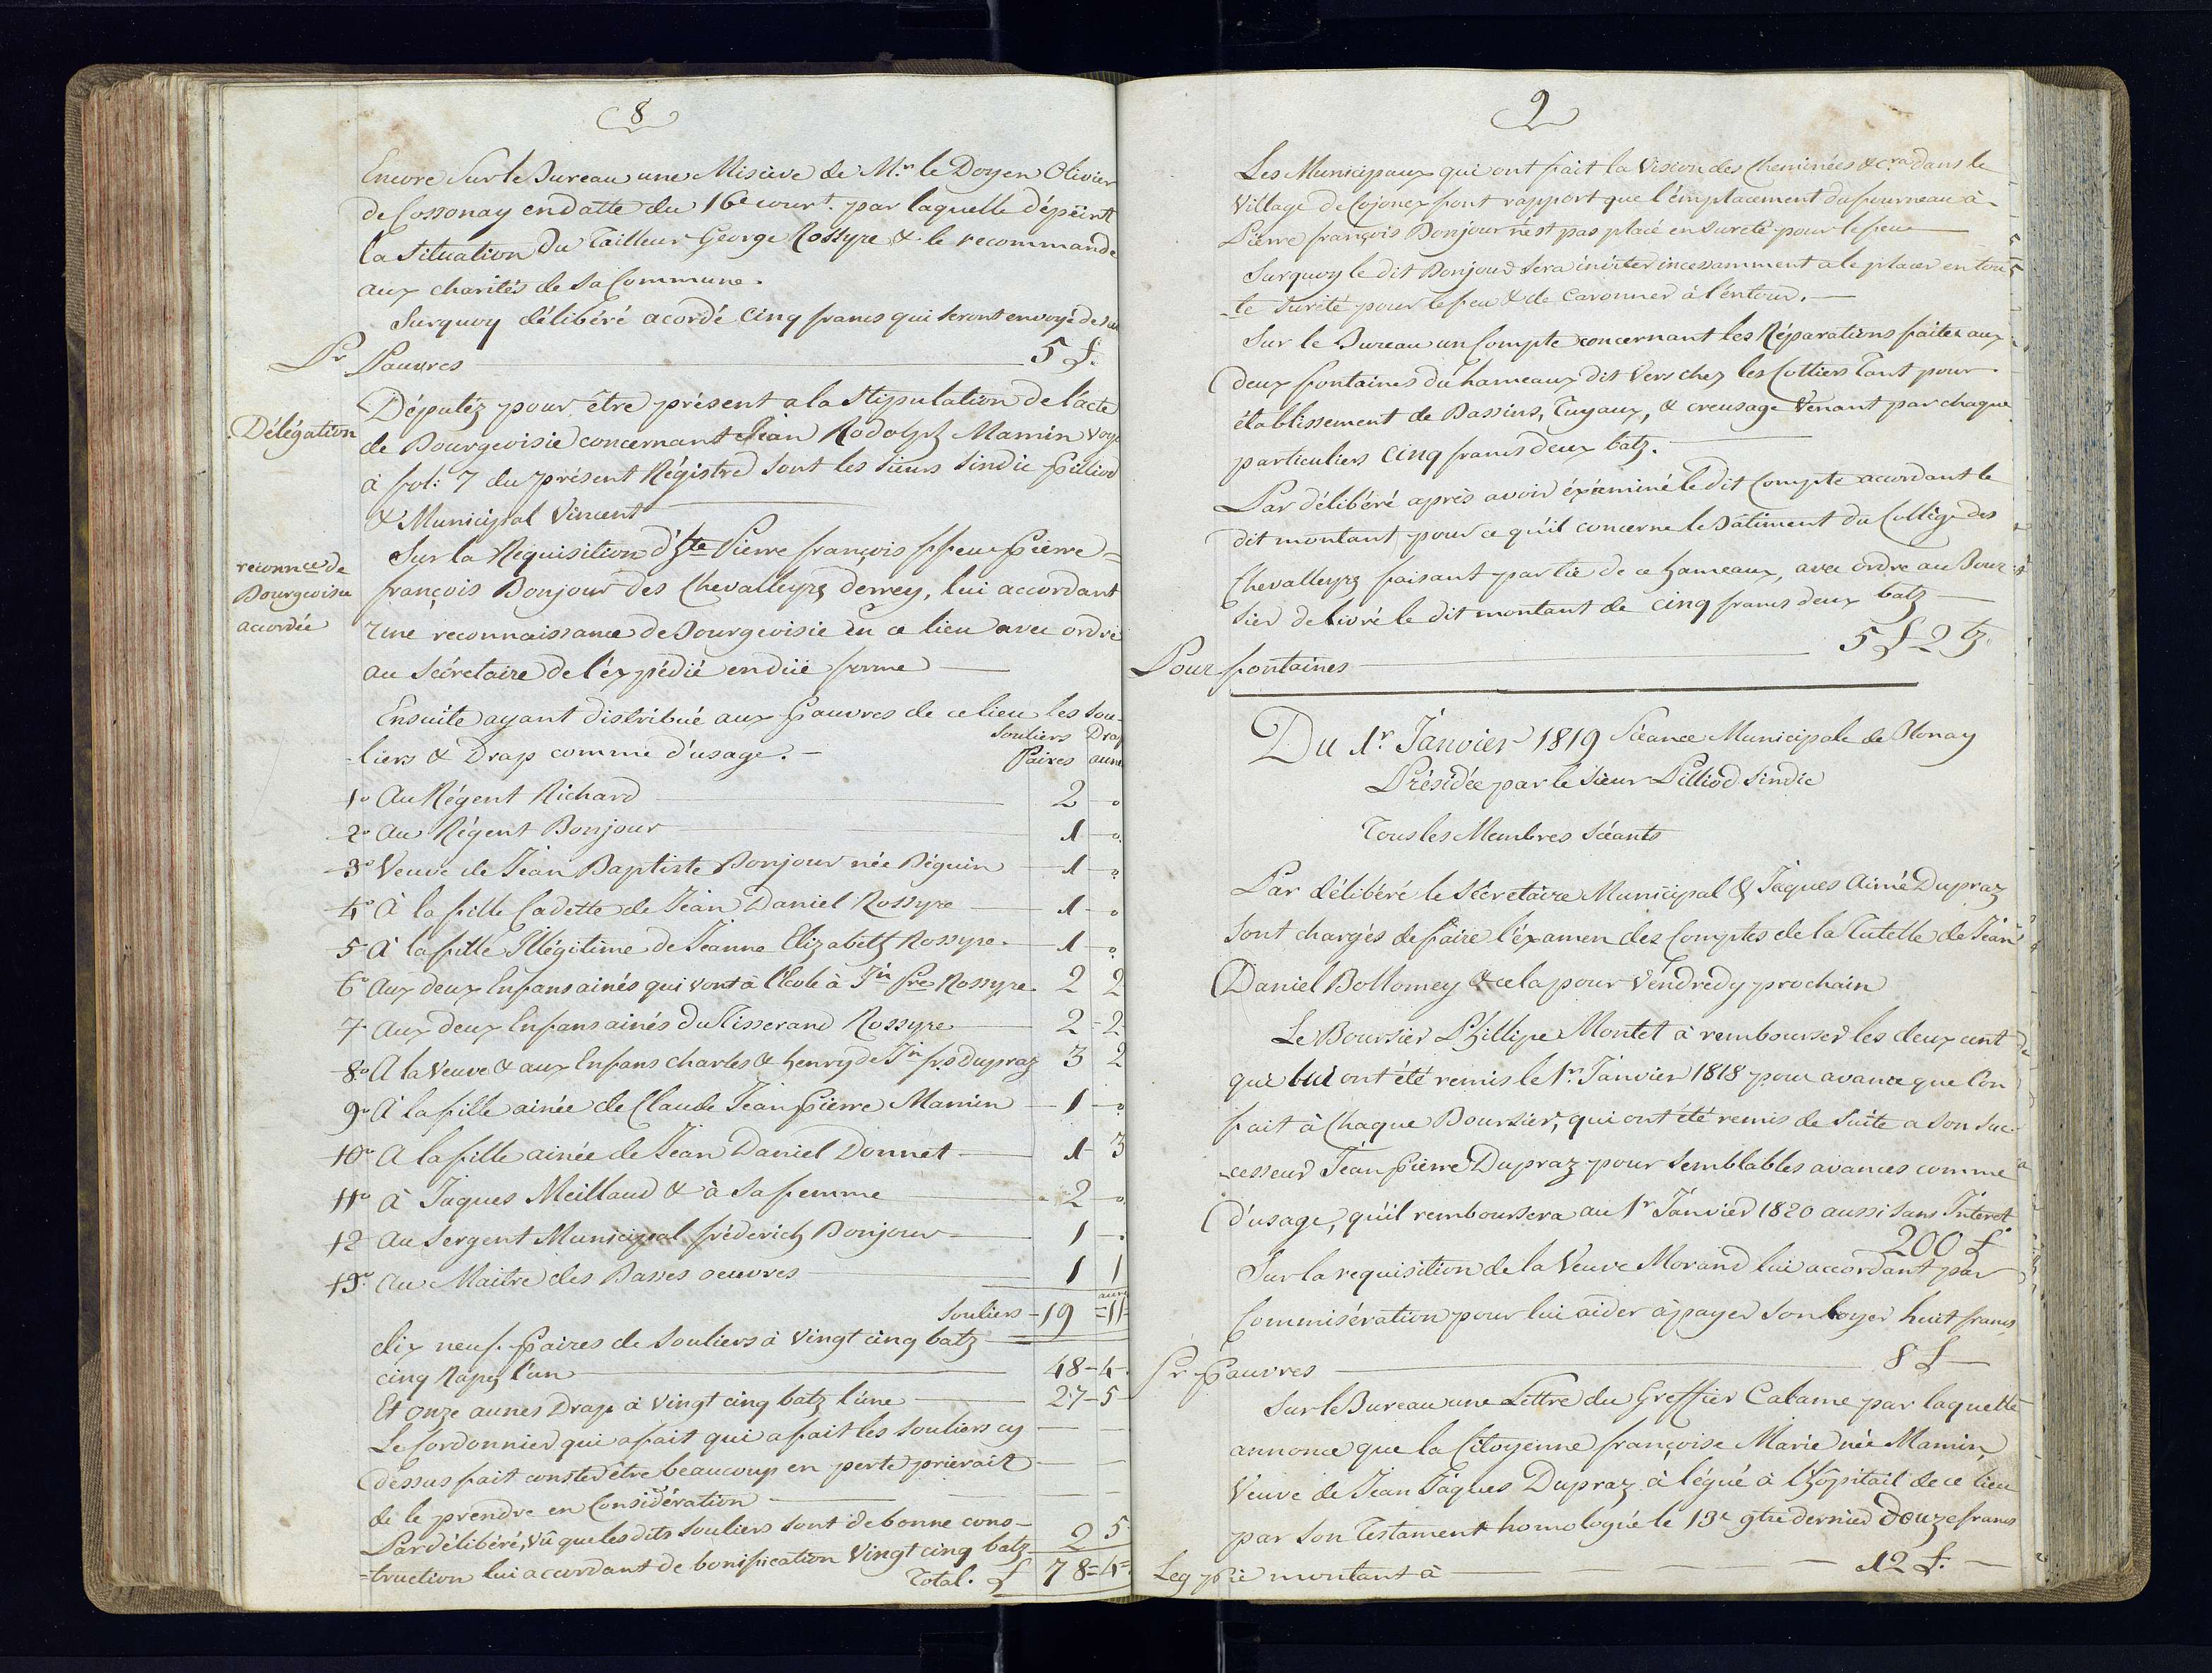 8
Encore Sur le Bureau une Misive de Mr. le Doyen Olivier
de Cossonay en datte du 16e courrt. par laquelle dépeint
la Situation du Tailleur George Rossyre & le recommande
aux charités de Sa Commune.
Surquoy délibéré acordé Cinq francs qui Seront envoyé de
Pr Pauvres 5 £.
Délégation
Députéz pour être présent a la Stipulation de l'acte
de Bourgeoisie concernant Jean Rodolph Mamin voye
à fol: 7 du présent Régistre Sont les Sieurs Sindic Pilliod
& Municipal Vincent
reconnce de
Bourgeoisie
accordée
Sur la Requisition d'hte Pierre françois ffeu Pierre
françois Bonjour des Chevalleyrs derrey, lui accordant
Une reconnaissance de Bourgeoisie En ce lieu avec ordre
au Sécretaire de l'éxpédié en düë forme
Ensuite ayant distribué aux Pauvres de ce lieu les Sou-
liers & Drap comme d'usage.
Souliers Drap
Paires aune
1o Au Régent Richard 2 o
2o Au Régent Bonjour 1 o
3o Veuve de Jean Baptiste Bonjour née Béguin 1 o
4o À la fille Cadette de Jean Daniel Rossyre 1 o
5 À la fille Illégitime de Jeanne Elizabeth Rossyre 1 o
6o Aux deux Enfans ainés qui vont à l'Ecole à Jn fre Rossyre 2 2
7 Aux deux Enfans ainés du Tisserand Rossyre 2 2
8o A la Veuve & aux Enfans charles & henry de Jn frs dupraz 3 2
9o À la fille ainée de Claude Jean Pierre Mamin 1 o
10o A la fille ainée de Jean Daniel Donnet 1 3
11o à Jaques Meillaud & à Sa femme 2 o
12 Au Sergent Municipal fréderich Bonjour 1 o
13o Au Maitre des Basses oeuvres 1 1
Souliers 19 = 11
dix neuf Paires de Souliers à Vingt cinq batz
cinq Rapes l'un 48-4
Et Onze aunes Drap à Vingt cinq batz l'une 27-5
Le Cordonnier qui a fait qui a fait les Souliers cy
dessus fait conster d'être beaucoup en perte prierait
de le prendre en Considération
Par délibéré, Vû que les dits Souliers Sont de bonne cons-
truction lui accordant de bonification Vingt cinq batz 2 5
Total. £ 78=4=
9
Les Municipaux qui ont fait la Vision des Cheminées &cra dans le
Village de Cojonex font rapport que l'émplacement du fourneau à
Pierre françois Bonjour n'est pas placé en Sureté pour le feu
Surquoy le dit Bonjour Sera inviter incessamment a le placer en tou
-te Sureté pour le feu & de Caronner à l'éntour.
Sur le Bureau un Compte concernant les Réparations faites aux
deux fontaines du hameaux dit Vers chez les Cottiers Tant pour
établissement de Bassins, Tuyaux, & creusage Venant par chaque
particuliers Cinq francs deux batz.
Par délibéré après avoir éxaminé le dit Compte acordant le
dit montant pour ce qu'il concerne le Bâtiment du Collège des
Chevalleyrs faisant partie de ce hameaux, avec ordre au Bour
sier de livré le dit montant de cinq francs deux batz
Pour fontaines 5 £ 2 bz
Du 1r Janvier 1819 Séance Municipale de Blonay
Présidée par le Sieur Pilliod Sindic
Tous les Membres Séants
Par délibéré le Sécretaire Municipal & Jaques Aimé Dupraz
Sont chargés de faire l'éxamen des Comptes de la Tutelle de Jean
Daniel Bottomey & cela pour Vendredy prochain
Le Boursier Phillipe Montet à rembourser les deux cent
qui lui ont été remis le 1r. Janvier 1818 pour avance que l'on
fait à Chaque Boursier, qui ont été remis de Suite a Son Suc
-cesseur Jean Pierre Dupraz pour Semblables avances comme
d'usage, qu'il remboursera au 1r Janvier 1820 aussi Sans Intéret
200 £
Sur la requisition de la Veuve Morand lui accordant par
Commisération pour lui aider à payer Son loyer huit francs
Pr Pauvres 8 £
Sur le Bureau une Lettre du Greffier Cabame par laquelle
annonce que la Citoyenne françoise Marie née Mamin,
Veuve de Jean Jaques Dupraz à légué à l'hôpitail de ce lieu
par Son Testament homologué le 13e 9bre dernier Douze francs
Leg pie montant à 12 £.